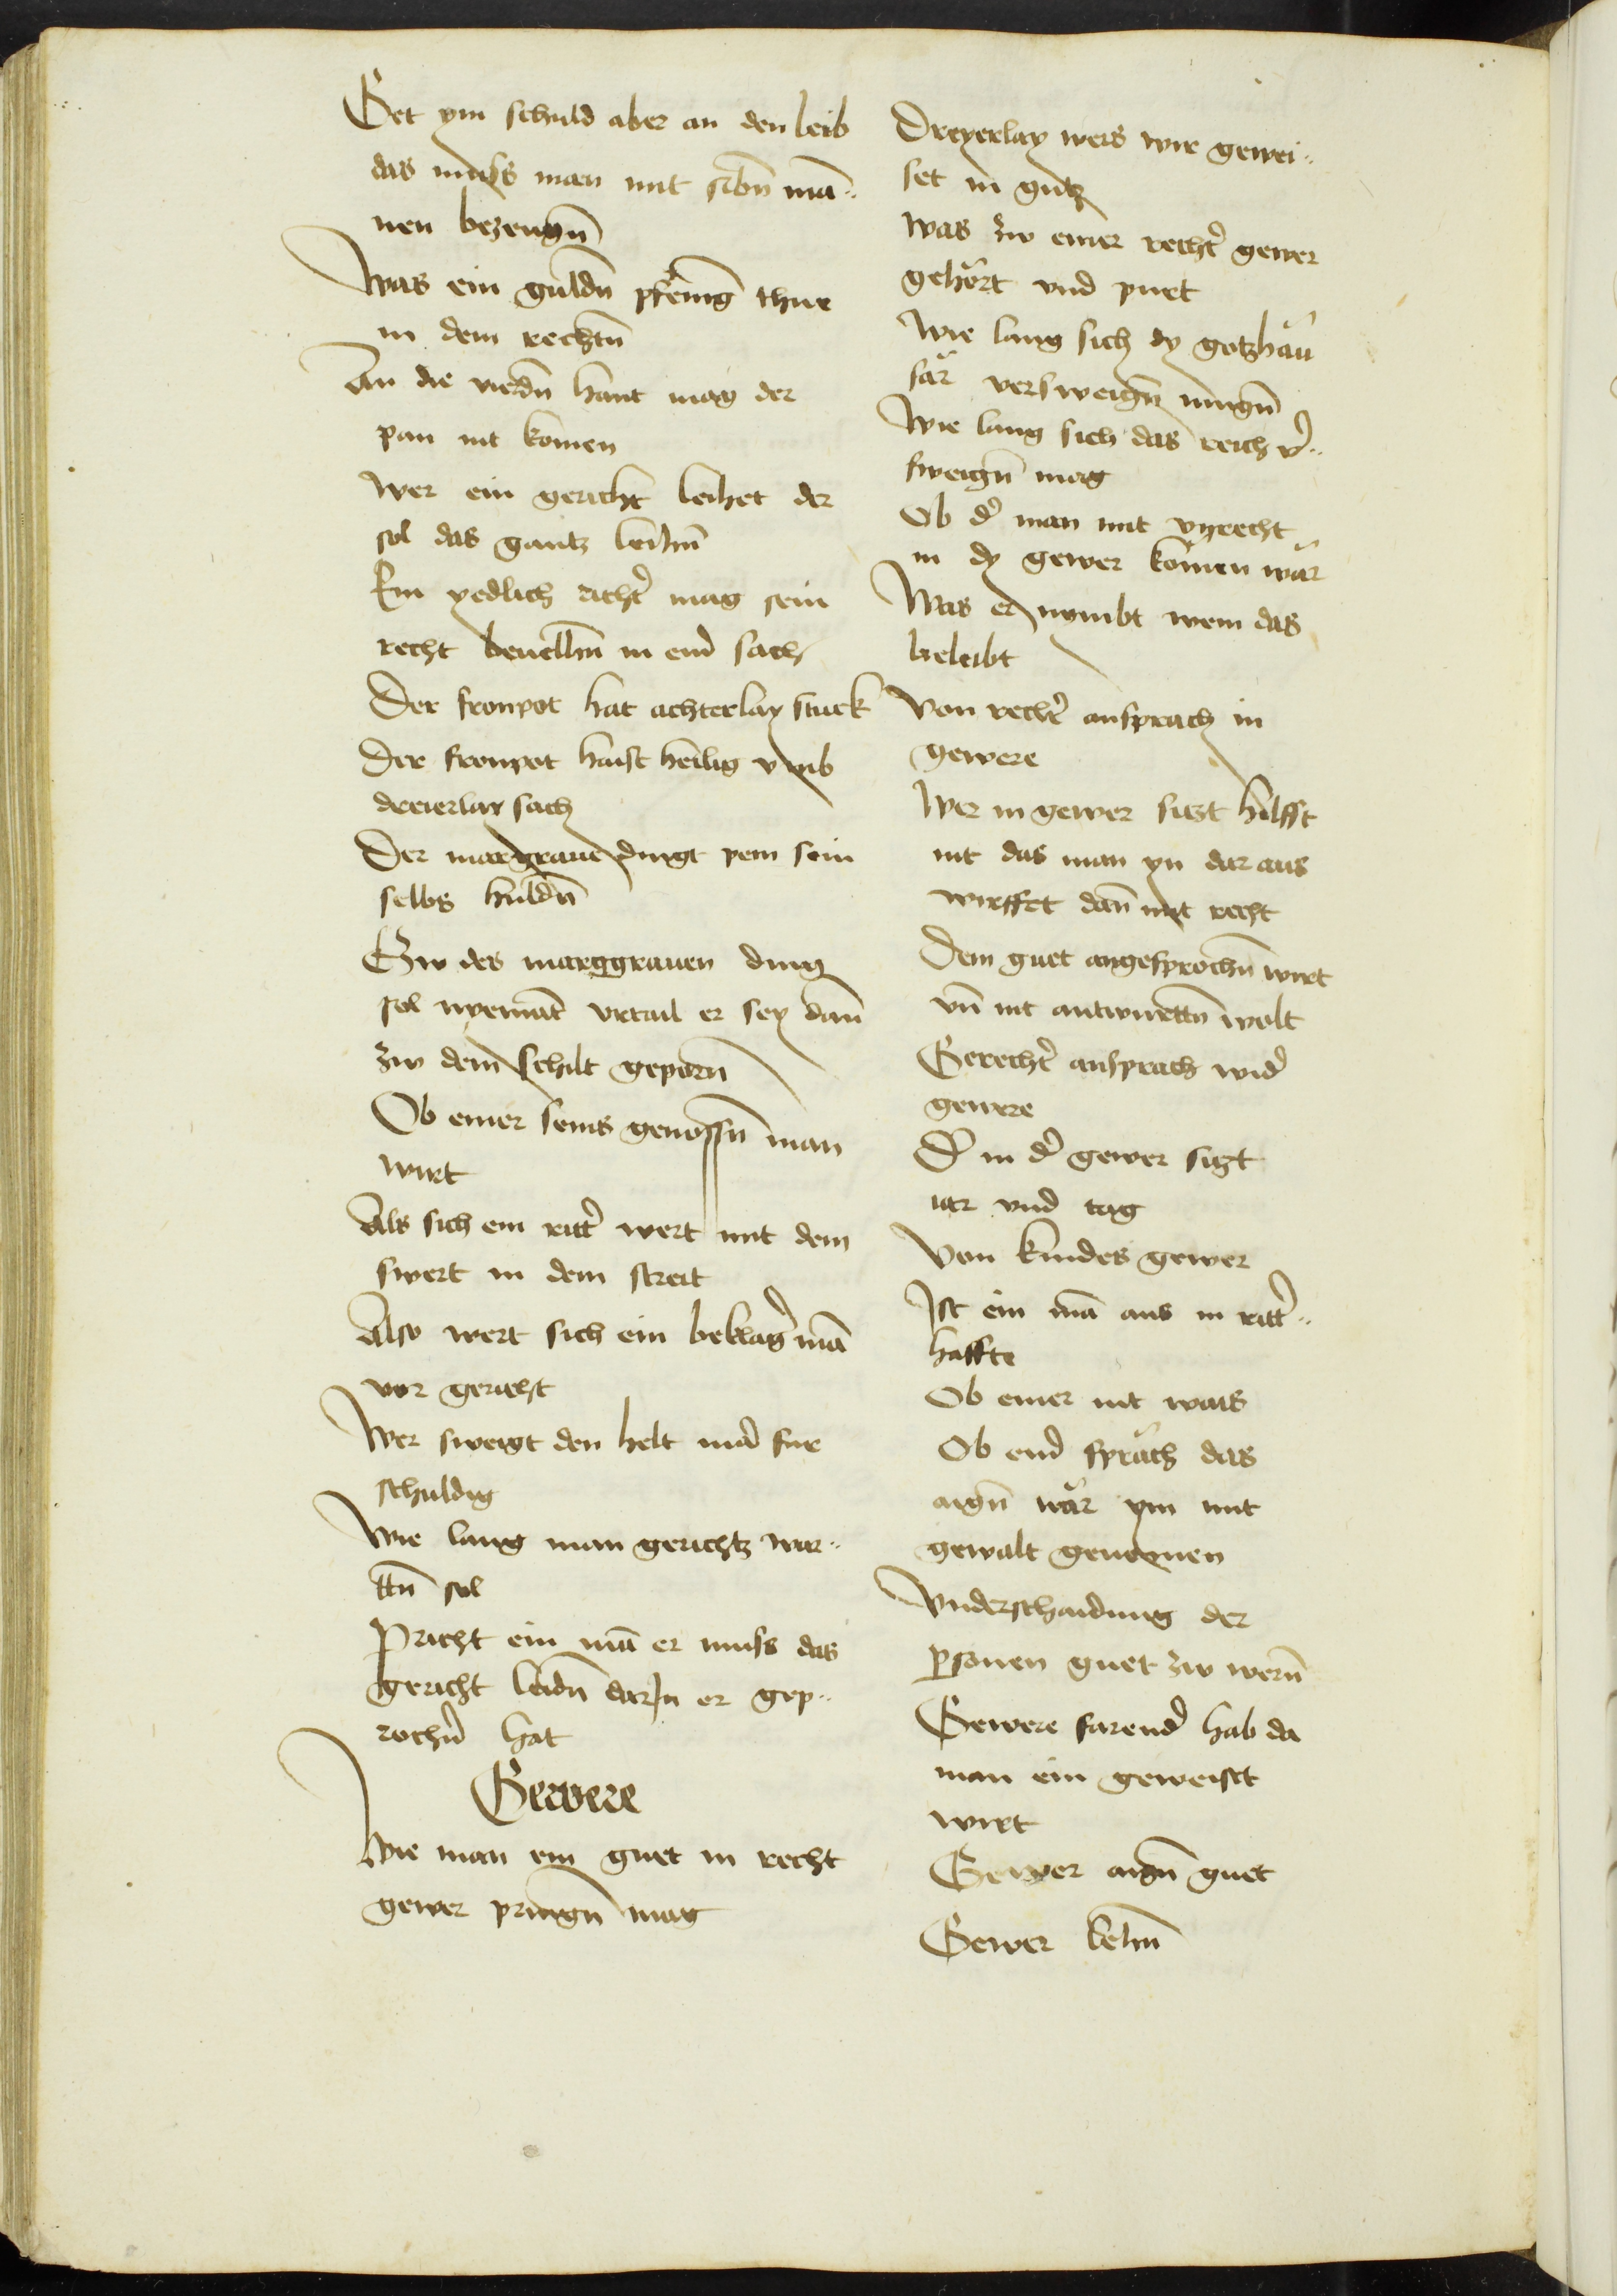 Get ym schuld aber an den leib
das muss man mit sibn̄ mā¨
nen bezeugn̄
Was ein guldn̄ pfēnīg thue
in dem rechtn̄
An die vierdn̄ hant mag der
pan nit komen
Wer ein gericht leihet der
sol das gantz leihn̄
Ein yedlich richt̾ mag sein
recht beuelhn̄ in ein̾ sach
Der fronpot hat achterlay stuck
Der fronpot haist heilig vmb
dreierlay sach
Der margraue dingt pein sein
selbs huldn̄
Zw des marggrauen ding
sol nyemāt vrtail er sey dan̄
zw dem schilt geporn̄
Ob einer seins genossn̄ man
wirt
Als sich ein ritt̾ wert mit dem
swert in dem streit
Also wert sich ein beklagt̾ mā
vor gericht
Wer sweigt den helt mā fur
schuldig
Wie lang man gerichtz war¨
ttn̄ sol
Pricht ein mā er muss das
gericht leidn̄ darIn er gep¨
rochn̄ hat
Gewere
Wie man ein guet in recht
gewer pringn̄ mag
Dreyerlay wers wir gewei¨
set in gutz
Was zw einer recht̾ gewer
gehört vnd puet
Wie lang sich dy gotzhäu
sär versweign̄ mugn̄
Wie lang sich das reich v̾¨
sweign̄ mag
Ob d̾ man mit vnrecht
in dy gewer komen wär
Was er nymbt wem das
beleibt
Von recht̾ ansprach in
gewere
Wer in gewer sitzt hilfft
nit das man yn dar aus
wirffet dan̄ mit recht
Dem guet angesprochn̄ wirt
vn̄ nit antwurttn̄ wolt
Gerecht̾ ansprach wid̾
gewere
D̾ in d̾ gewer sitzt
iar vnd tag
Von kindes gewer
Ist ein mā aus in ritt̾¨
haffte
Ob einer nit wais
Ob ein̾ spräch das
aign̄ wär ym mit
gewalt genomen
Vnderschaidung der
psonen guet zw wern̄
Gewere farend̾ hab da
man ein geweiset
wirt
Gewer aign̄ guet
Gewer lehn̄